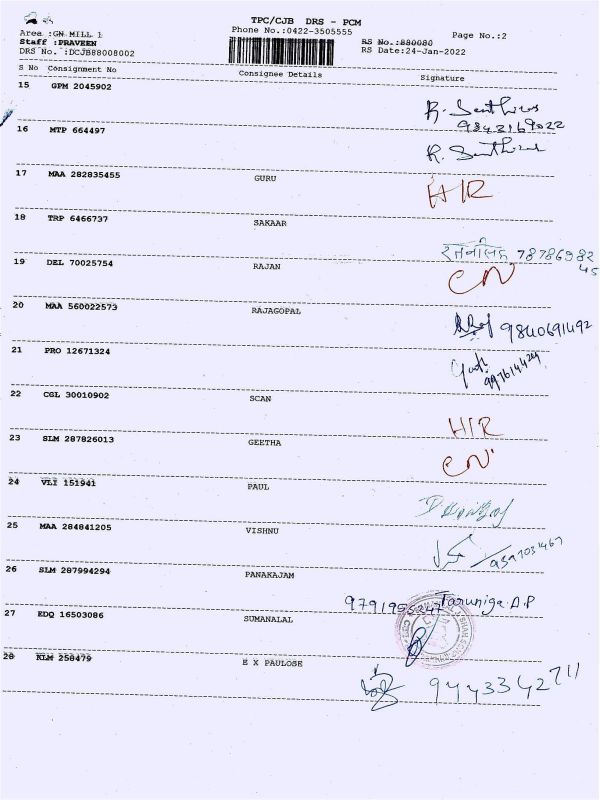 TPC/CJB DRS - PCM
Area :GN MILL 1
Phone No.:0422-3505555
Page No.:2
Staff :PRAVEEN
RS No.:880080
DRS No. :DCJB88008002
RS Date:24-Jan-2022
S No Consignment No Consignee Details Signature
15 GPM 2045902
R. Senthil
9842169022
16 MTP 664497
R. Senthil
17 MAA 282835455 GURU
H/R
18 TRP 6466737 SAKAAR
78786982
45
19 DEL 70025754 RAJAN
CN
20 MAA 560022573 RAJAGOPAL
9840691492
21 PRO 12671324
22 CGL 30010902 SCAN
H/R
23 SLM 287826013 GEETHA
CN
24 VLI 151941 PAUL
25 MAA 284841205 VISHNU
26 SLM 287994294 PANAKAJAM
Taruniga A.P
27 EDQ 16503086 SUMANALAL
28 KLM 258479 E X PAULOSE
9443342711